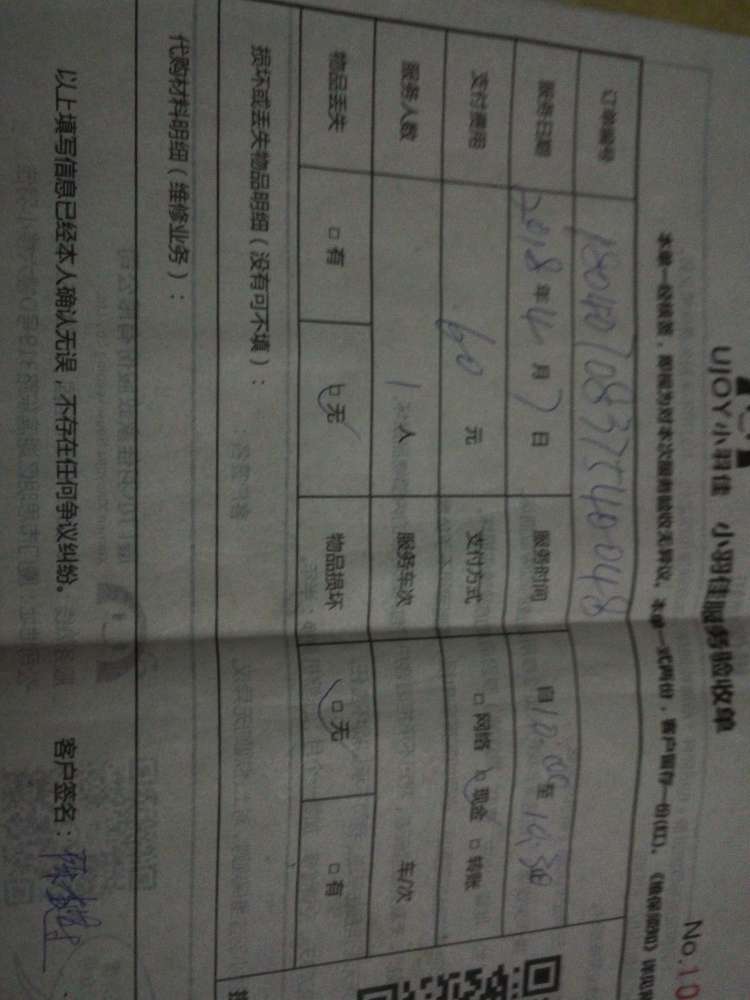 UJOY小羽佳 小羽佳服务验收单
No.10
本单一经核签，即视为对本次服务验收无异议。本单一式两份，客户留存一份(红)。《维保须知》详见
订单编号
服务日期 2018年4月7日 服务时间 自10:05至10:30
支付费用 60元 支付方式 □网络 □现金 □转账
服务人数 1人 服务车次 车/次
物品丢失 □有 □无 物品损坏 □无 □有
损坏或丢失物品明细（没有可不填）：
代购材料明细（维修业务）：
以上填写信息已经本人确认无误，不存在任何争议纠纷。 客户签名：